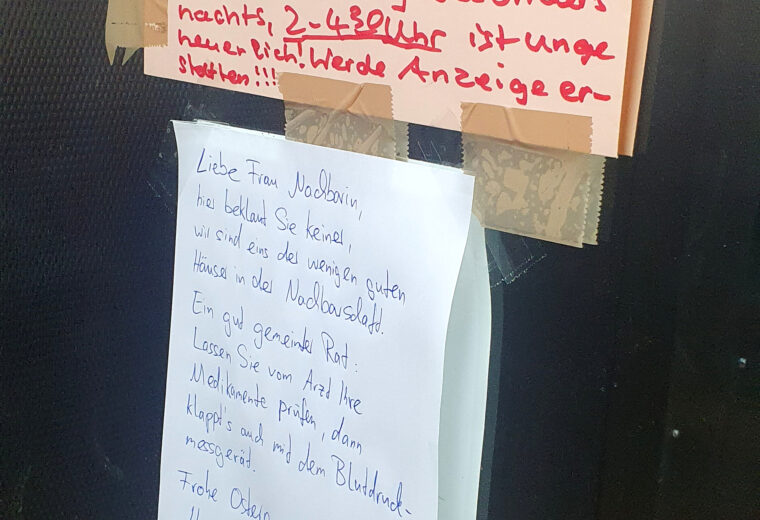 nachts, 2-430Uhr ist unge
heuerlich! Werde Anzeige er-
statten!!!
Liebe Frau Nachbarin,
hier beklaut Sie keiner,
wir sind eins der wenigen guten
Häuser in der Nachbarschaft.
Ein gut gemeinter Rat:
Lassen Sie vom Arzt Ihre
Medikamente prüfen, dann
klappt's auch mit dem Blutdruck-
messgerät.
Frohe Ostern